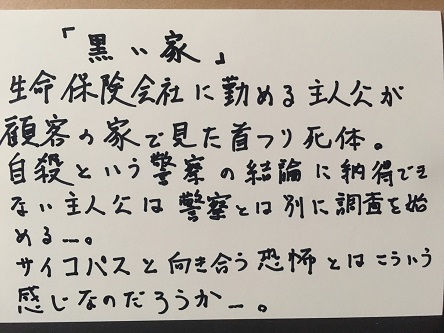 「黒い家」
生命保険会社に勤める主人公が
顧客の家で見た首つり死体。
自殺という警察の結論に納得でき
ない主人公は警察とは別に調査を始
める―。
サイコパスと向き合う恐怖とはこういう
感じなのだろうか―。